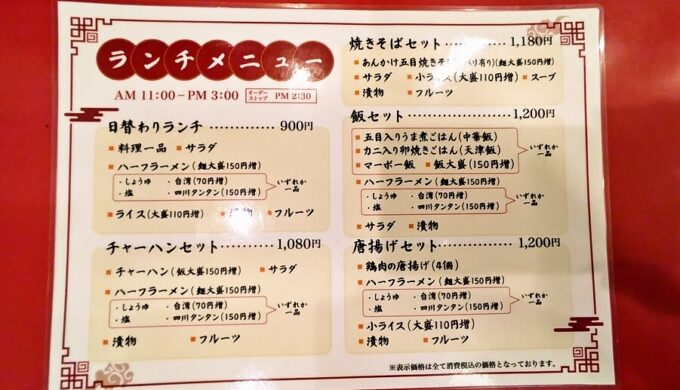 ランチメニュー
AM 11:00－PM 3:00 オーダーストップ PM 2:30
日替わりランチ············· 900円
■料理一品 ■サラダ
■ハーフラーメン(麺大盛150円増)
・しょうゆ ・台湾(70円増)
・塩 ・四川タンタン(150円増)
いずれか一品
■ライス(大盛110円増) ■漬物 ■フルーツ
チャーハンセット········· 1,080円
■チャーハン(飯大盛150円増) ■サラダ
■ハーフラーメン(麺大盛150円増)
・しょうゆ ・台湾(70円増)
・塩 ・四川タンタン(150円増)
いずれか一品
■漬物 ■フルーツ
焼きそばセット········· 1,180円
■あんかけ五目焼きそば 有り)(麺大盛150円増)
■サラダ ■小ライス(大盛110円増) ■スープ
■漬物 ■フルーツ
飯セット··················· 1,200円
■五目入りうま煮ごはん(中華飯)
■カニ入り卵焼きごはん(天津飯)
■マーボー飯 ■飯大盛(150円増)
いずれか一品
■ハーフラーメン(麺大盛150円増)
・しょうゆ ・台湾(70円増)
・塩 ・四川タンタン(150円増)
いずれか一品
■サラダ ■漬物
唐揚げセット············ 1,200円
■鶏肉の唐揚げ(4個)
■ハーフラーメン(麺大盛150円増)
・しょうゆ ・台湾(70円増)
・塩 ・四川タンタン(150円増)
いずれか一品
■小ライス(大盛110円増)
■漬物 ■フルーツ
※表示価格は全て消費税込の価格となっております。